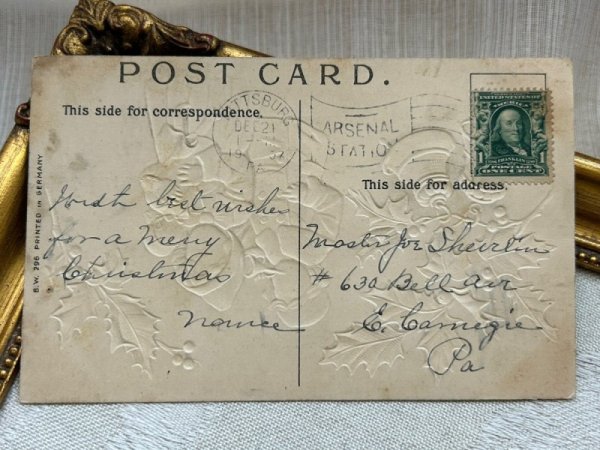 POST CARD.
This side for correspondence.
This side for address.
PITTSBURG
DEC 21
PA
ARSENAL
STATION
UNITED STATES OF
AMERICA
1
FRANKLIN
POSTAGE
ONE CENT
B. W. 296 PRINTED IN GERMANY
With best wishes
for a Merry
Christmas
Master Joe
# 630 Bell Air
E. Carnegie
Pa